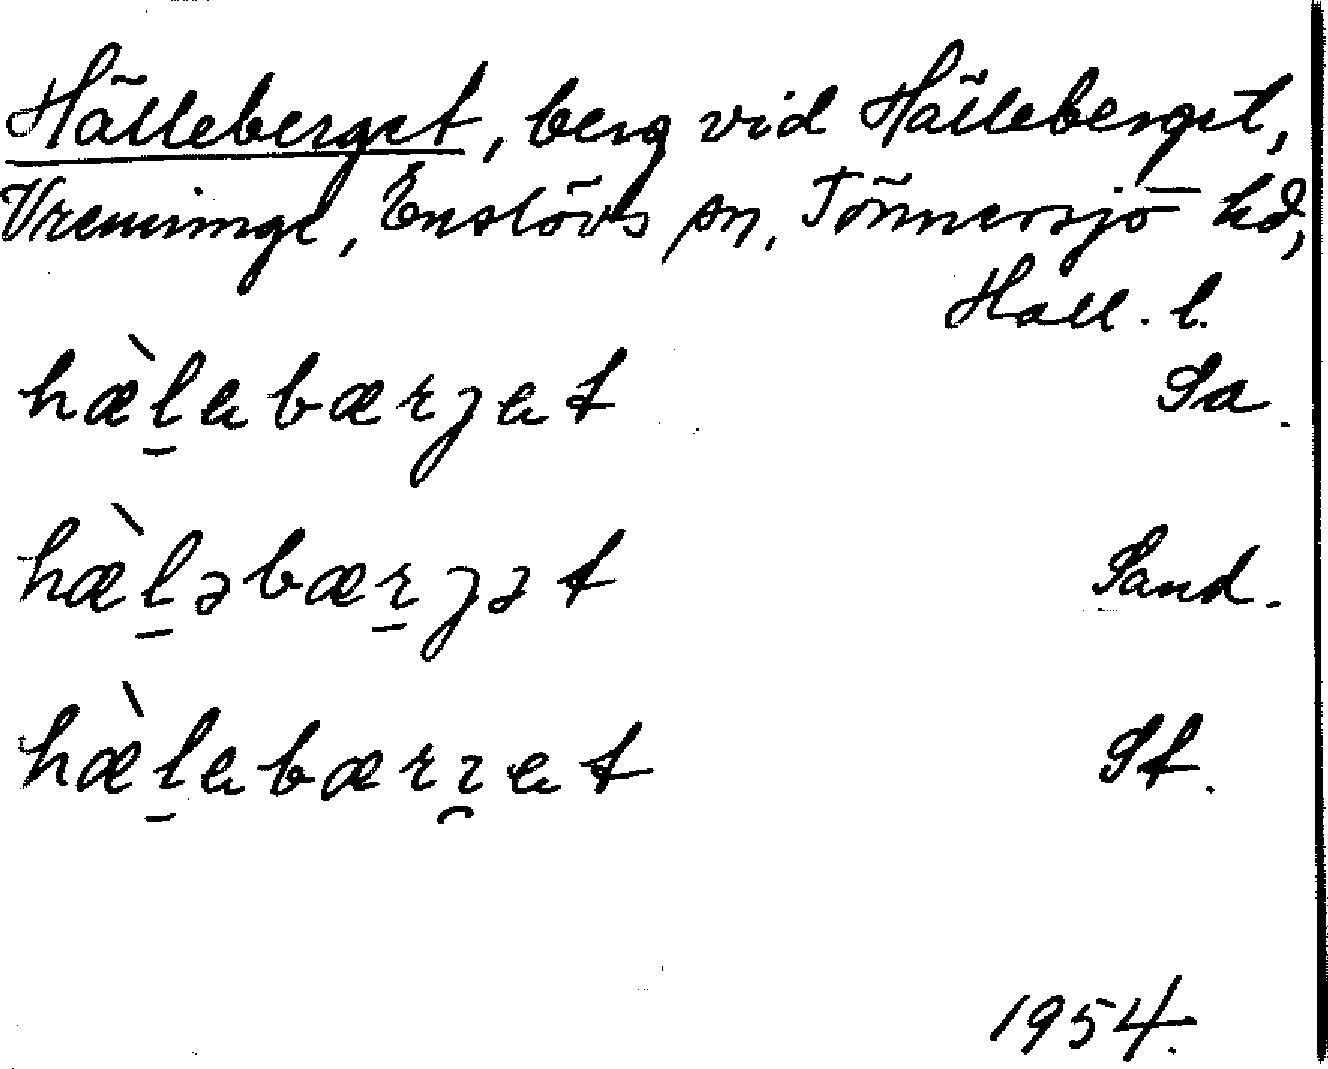 Hälleberget, berg vid Hälleberget,
Vrenninge, Enslövs sn, Tönnersjö hd,
Hall. l.
hæ̀l̠ebærȷet Sa.
hæ̀l̠əbær̠ȷət Sand.
hæ̀l̠ebær ̯et St.
1954.